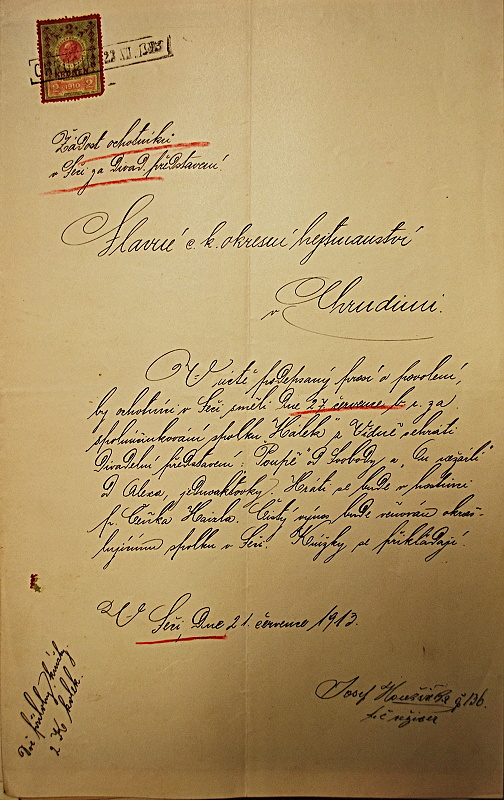 2 1910 2
23 VII. 1913
Žádost ochotníků
v Seči za divad. představení.
Slavné c. k. okresní hejtmanství
v Chrudimi.
V úctě podepsaný prosí o povolení,
by ochotníci v Seči směli dne 27. července t. r. za
spoluúčinkování spolku "Hálek" z Vídně sehráti
divadelní představení: "Poupě" od Svobody a
od Alexa, jednoaktovky. Hráti se bude v hostinci
p. Čeňka Čistý výnos bude věnován okraš-
lujícímu spolku v Seči. Knížky se přikládají.
V Seči, dne 21. července 1913.
Josef č. 136
t. č. režiser
Dvě přílohy knížky
2 K kolek.